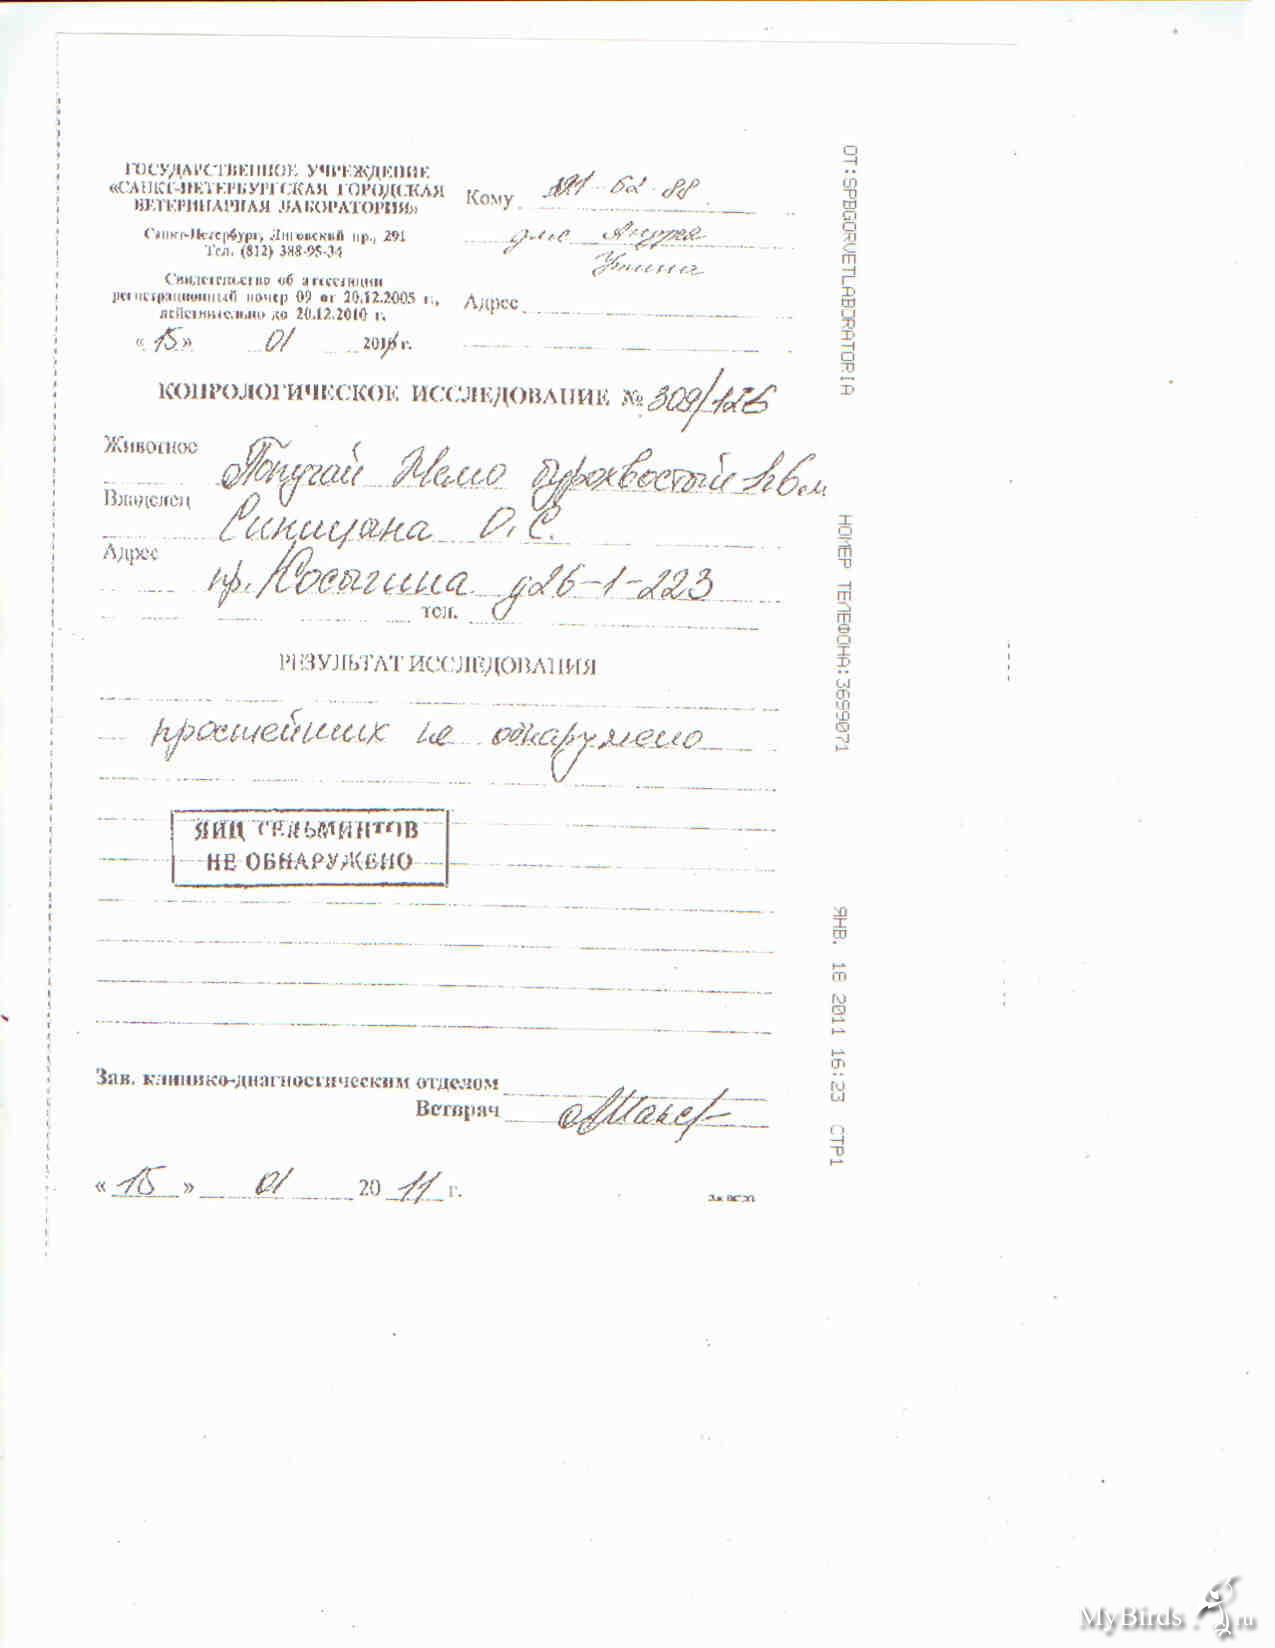 ГОСУДАРСТВЕННОЕ УЧРЕЖДЕНИЕ
«САНКТ-ПЕТЕРБУРГСКАЯ ГОРОДСКАЯ
ВЕТЕРИНАРНАЯ ЛАБОРАТОРИЯ»
Санкт-Петербург, Лиговский пр., 291
Тел. (812) 388-95-34
Свидетельство об аттестации
регистрационный номер 09 от 20.12.2005 г.,
действительно до 20.12.2010 г.
«15» 01 2011 г.
Кому 191-62-88
для Андрея
Адрес
КОПРОЛОГИЧЕСКОЕ ИССЛЕДОВАНИЕ № 309/126
Животное
Попугай Немо
Владелец
Синицына О.С.
Адрес
пр. Косыгина д26-1-223
тел.
РЕЗУЛЬТАТ ИССЛЕДОВАНИЯ
простейших не обнаружено
ЯИЦ ГЕЛЬМИНТОВ
НЕ ОБНАРУЖЕНО
Зав. клинико-диагностическим отделом
Ветврач
«15» 01 2011 г.
ОТ:SPBGORVETLABORATORIA
НОМЕР ТЕЛЕФОНА:3699071
ЯНВ. 18 2011 16:23 СТР1
MyBirds.ru